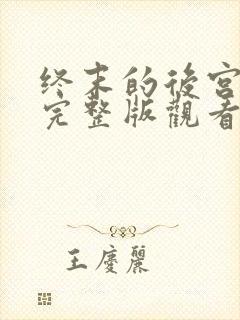 终末的後宫
完整版觀看
王慶麗